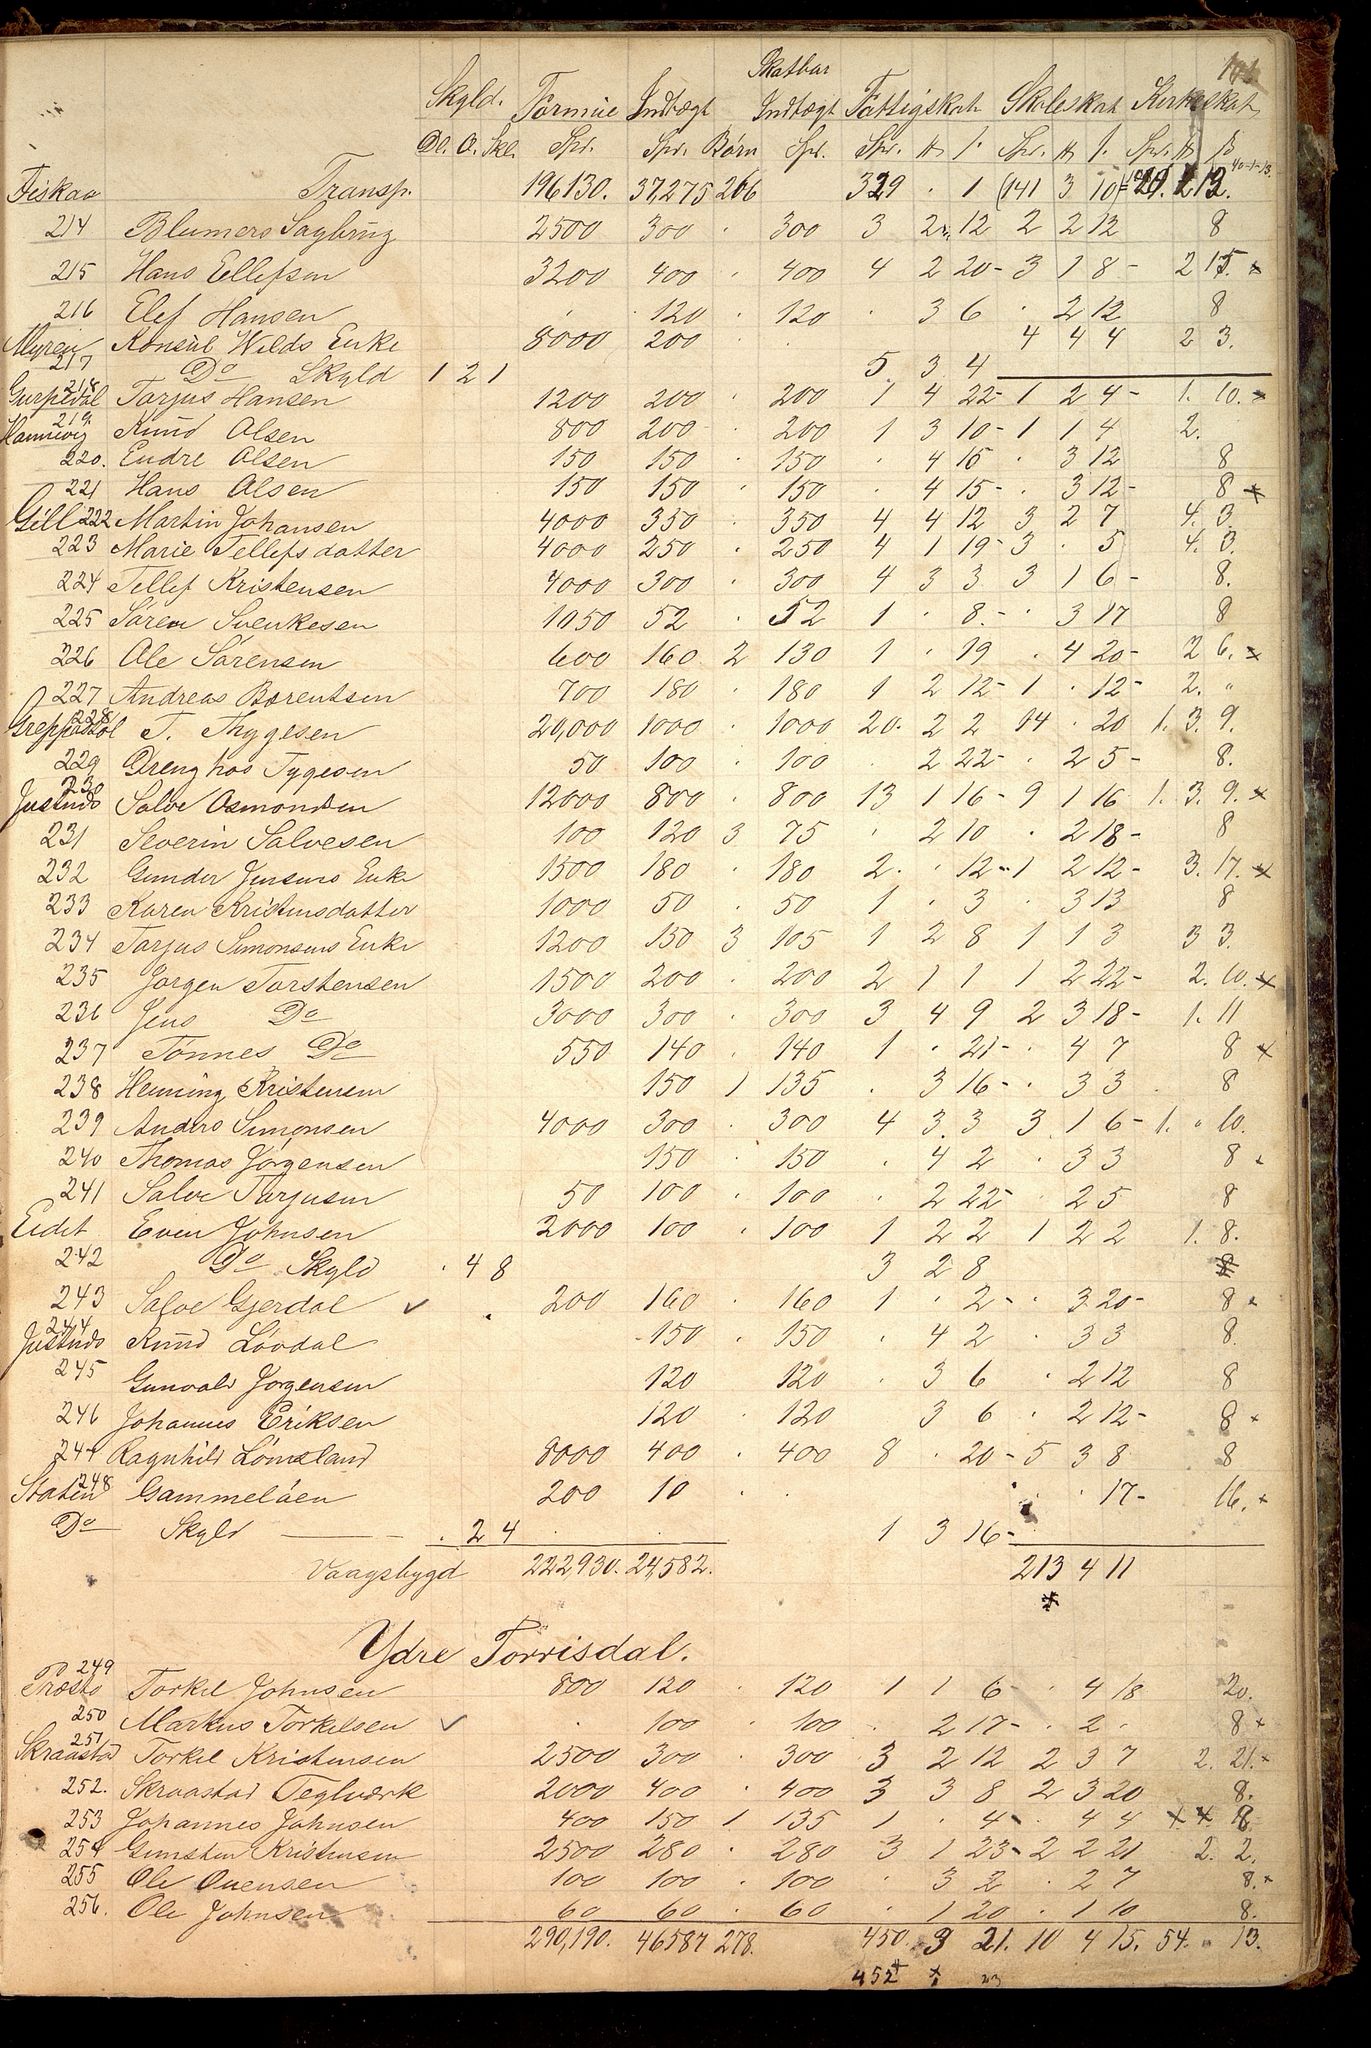 Skatbar
Skyld. Formue Indtægt Indtægt Fattigskat Skoleskat Kirkeskat
Dl. O. Skl. Spr. Spr. Børn Spr. Spr. # ß. Spr. # ß. Spr. # ß
40-1-13.
Fiskaa Transp. 196130. 37,275 266 329 . 1 141 3 10 212.
214 Blumers Sagbrug 2500 300 . 300 3 2 12 2 2 12 8
215 Hans Ellefsen 3200 400 . 400 4 2 20 - 3 1 8 - 2 15. x
216 Elef Hansen 120 . 120 . 3 6 . 2 12 8
Myren Konsul Wilds Enke 8000 200 . 4 4 4 2 3.
217 Do Skyld 1 2 1 5 3 4
Gurpedal 218 Tarjus Hansen 1200 200 . 200 1 4 22 - 1 2 4 - 1. 10. x
Hannevig 219. Knud Olsen 800 200 200 1 3 10 - 1 1 4 2.
220. Endre Olsen 150 150 . 150 . 4 15 . 3 12 8
221 Hans Olsen 150 150 . 150 . 4 15 - . 3 12 - 8 x
Gill 222 Martin Johansen 4000 350 . 350 4 4 12 3 2 7 4. 3.
223 Marie Tellefsdatter 4000 250 . 250 4 1 19 - 3 . 5 4. 3.
224 Tellef Kristensen 4000 300 . 300 4 3 3 3 1 6 - 8.
225 Søren Svenkesen 1050 52 . 52 1 . 8. . 3 17 8
226 Ole Sørensen 600 160 2 130 1 . 19 . 4 20 - 2 6. x
227 Andreas Bærentsen 700 180 . 180 1 2 12 - 1 . 12 - 2. "
Greppestøl 228 T. Thygesen 20,000 1000 . 1000 20. 2 2 14 . 20 1. 3. 9.
229 Dreng hos Tygesen 50 100 . 100 . 2 22 - . 2 5 - 8.
230
Justnes Salve Osmondsen 12000 800 . 800 13 1 16 - 9 1 16 1. 3. 9. x
231 Severin Salvesen 100 120 3 75 . 2 10 . 2 18 - 8
232 Gunder Jensens Enke 1500 180 . 180 2. . 12 - 1 2 12 - 3. 17. x
233 Karen Kristensdatter 1000 50 . 50 1 . 3 . 3 13 8
234 Tarjus Simonsens Enke 1200 150 3 105 1 2 8 1 1 3 3 3.
235 Jørgen Torstensen 1500 200 . 200 2 1 1 1 2 22 - 2. 10. x
236 Jens Do 3000 300 . 300 3 4 9 2 3 18 - 1. 11
237 Tønnes Do 550 140 . 140 1 . 21 - . 4 7 8 x
238 Henning Kristensen 150 1 135 . 3 16 - . 3 3 . 8
239 Anders Simonsen 4000 300 . 300 4 3. 3 3. 1 6 - 1. " 10.
240 Thomas Jørgensen 150 . 150 . 4 2 . 3 3 8 x
241 Salve Tarjusen 50 100 . 100 . 2 22 - . 2 5 8
Eidet Even Johnsen 2000 100 . 100 1 2 2 1 2 2 1. 8.
242 Do Skyld . 4 8 3 2 8
243 Salve Gjerdal 200 160 . 160 1 . 2 - . 3 20 - 8 x
244
Justnes Knud Løvdal 150 . 150 . 4 2 . 3 3 8.
245 Gunvald Jørgensen 120 120 . 3 6 . 2 12 8
246 Johannes Eriksen 120 . 120 3 6 . 2 12 - 8 x
247 Ragnhild Lømsland 8000 400 . 400 8 . 20 - 5 3 8 8
Staten 248 Gammeløen 200 10 . . . . 17 - 16. x
Do Skyld . 2 4 . . 1 3 16 -
Vaagsbygd 222930. 24,582. 213 4 11
x
Ydre Torrisdal.
249
Præstø Torkel Johnsen 800 120 . 120 1 1 6 - . 4 18 20.
250 Markus Torkelsen . 100 . 100 . 2 17 - . 2 . 8 x
251
Skraastad Torkel Kristensen 2500 300 . 300 3 2 12 2 3 7 2. 21. x
252. Skraastad Teglværk 2000 400 . 400 3 3 8 2 3 20 8.
253 Johannes Johnsen 400 150 1 135 1 . 4 - . 4 4 x. x. 8
254 Gunsten Kristensen 2500 280 . 280 3 1 23 - 2 2 21 2. 2.
255 Ole Ouensen 100 100 . 100 . 3 2 . 2 7 8. x
256. Ole Johnsen 60 60 . 60 . 1 20 . 1 10 8.
290,190. 46587 278. 450. 3 21. 10 4 15. 54. " 13.
452 x x 23